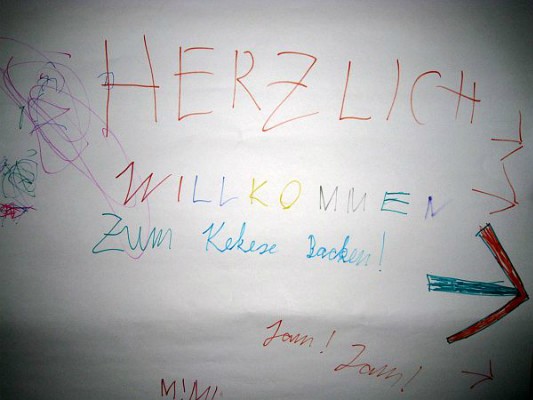 HERZLICH
WILLKOMMEN
Zum Kekese Backen!
Jam! Jam!
MiMi